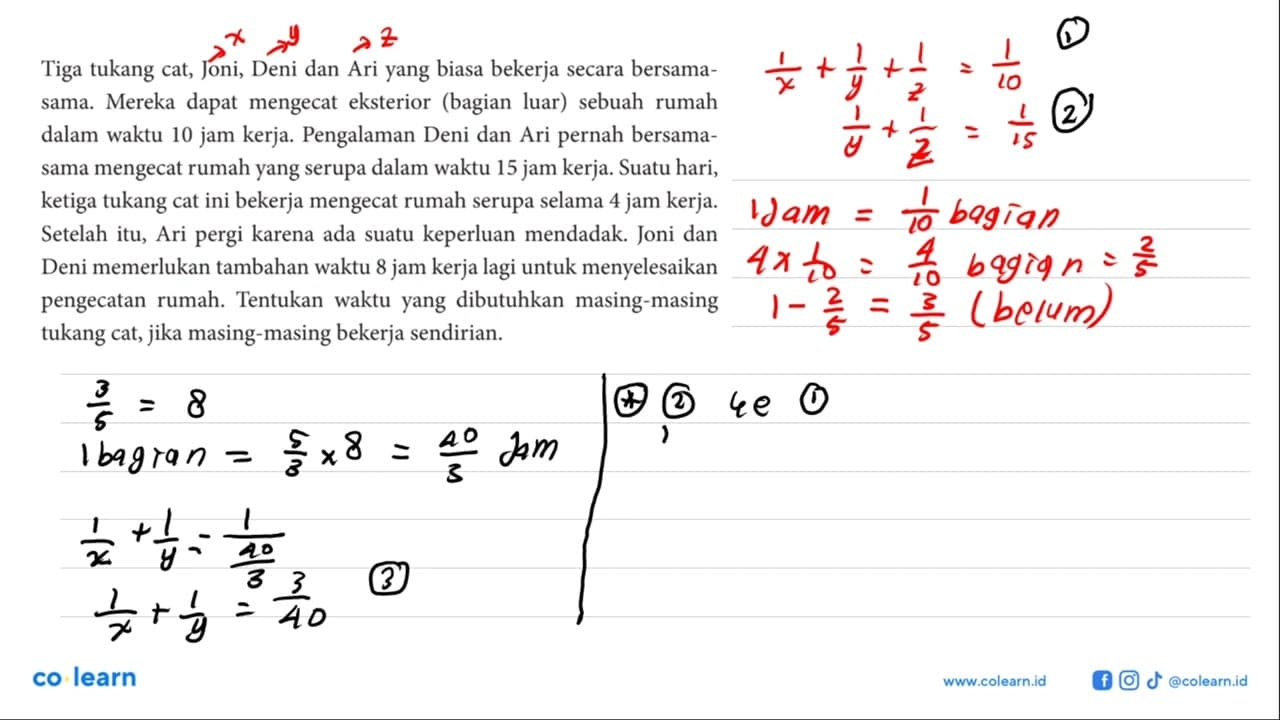 x y z
Tiga tukang cat, Joni, Deni dan Ari yang biasa bekerja secara bersama-
sama. Mereka dapat mengecat eksterior (bagian luar) sebuah rumah
dalam waktu 10 jam kerja. Pengalaman Deni dan Ari pernah bersama-
sama mengecat rumah yang serupa dalam waktu 15 jam kerja. Suatu hari,
ketiga tukang cat ini bekerja mengecat rumah serupa selama 4 jam kerja.
Setelah itu, Ari pergi karena ada suatu keperluan mendadak. Joni dan
Deni memerlukan tambahan waktu 8 jam kerja lagi untuk menyelesaikan
pengecatan rumah. Tentukan waktu yang dibutuhkan masing-masing
tukang cat, jika masing-masing bekerja sendirian.
1/x + 1/y + 1/z = 1/10 ①
1/y + 1/z = 1/15 ②
1 Jam = 1/10 bagian
4 x 1/10 = 4/10 bagian = 2/5
1 - 2/5 = 3/5 (belum)
3/5 = 8
1 bagian = 5/3 x 8 = 40/3 Jam
1/x + 1/y = 1/(40/3)
1/x + 1/y = 3/40 ③
⊛ ② ke ①
1
co learn
www.colearn.id
@colearn.id